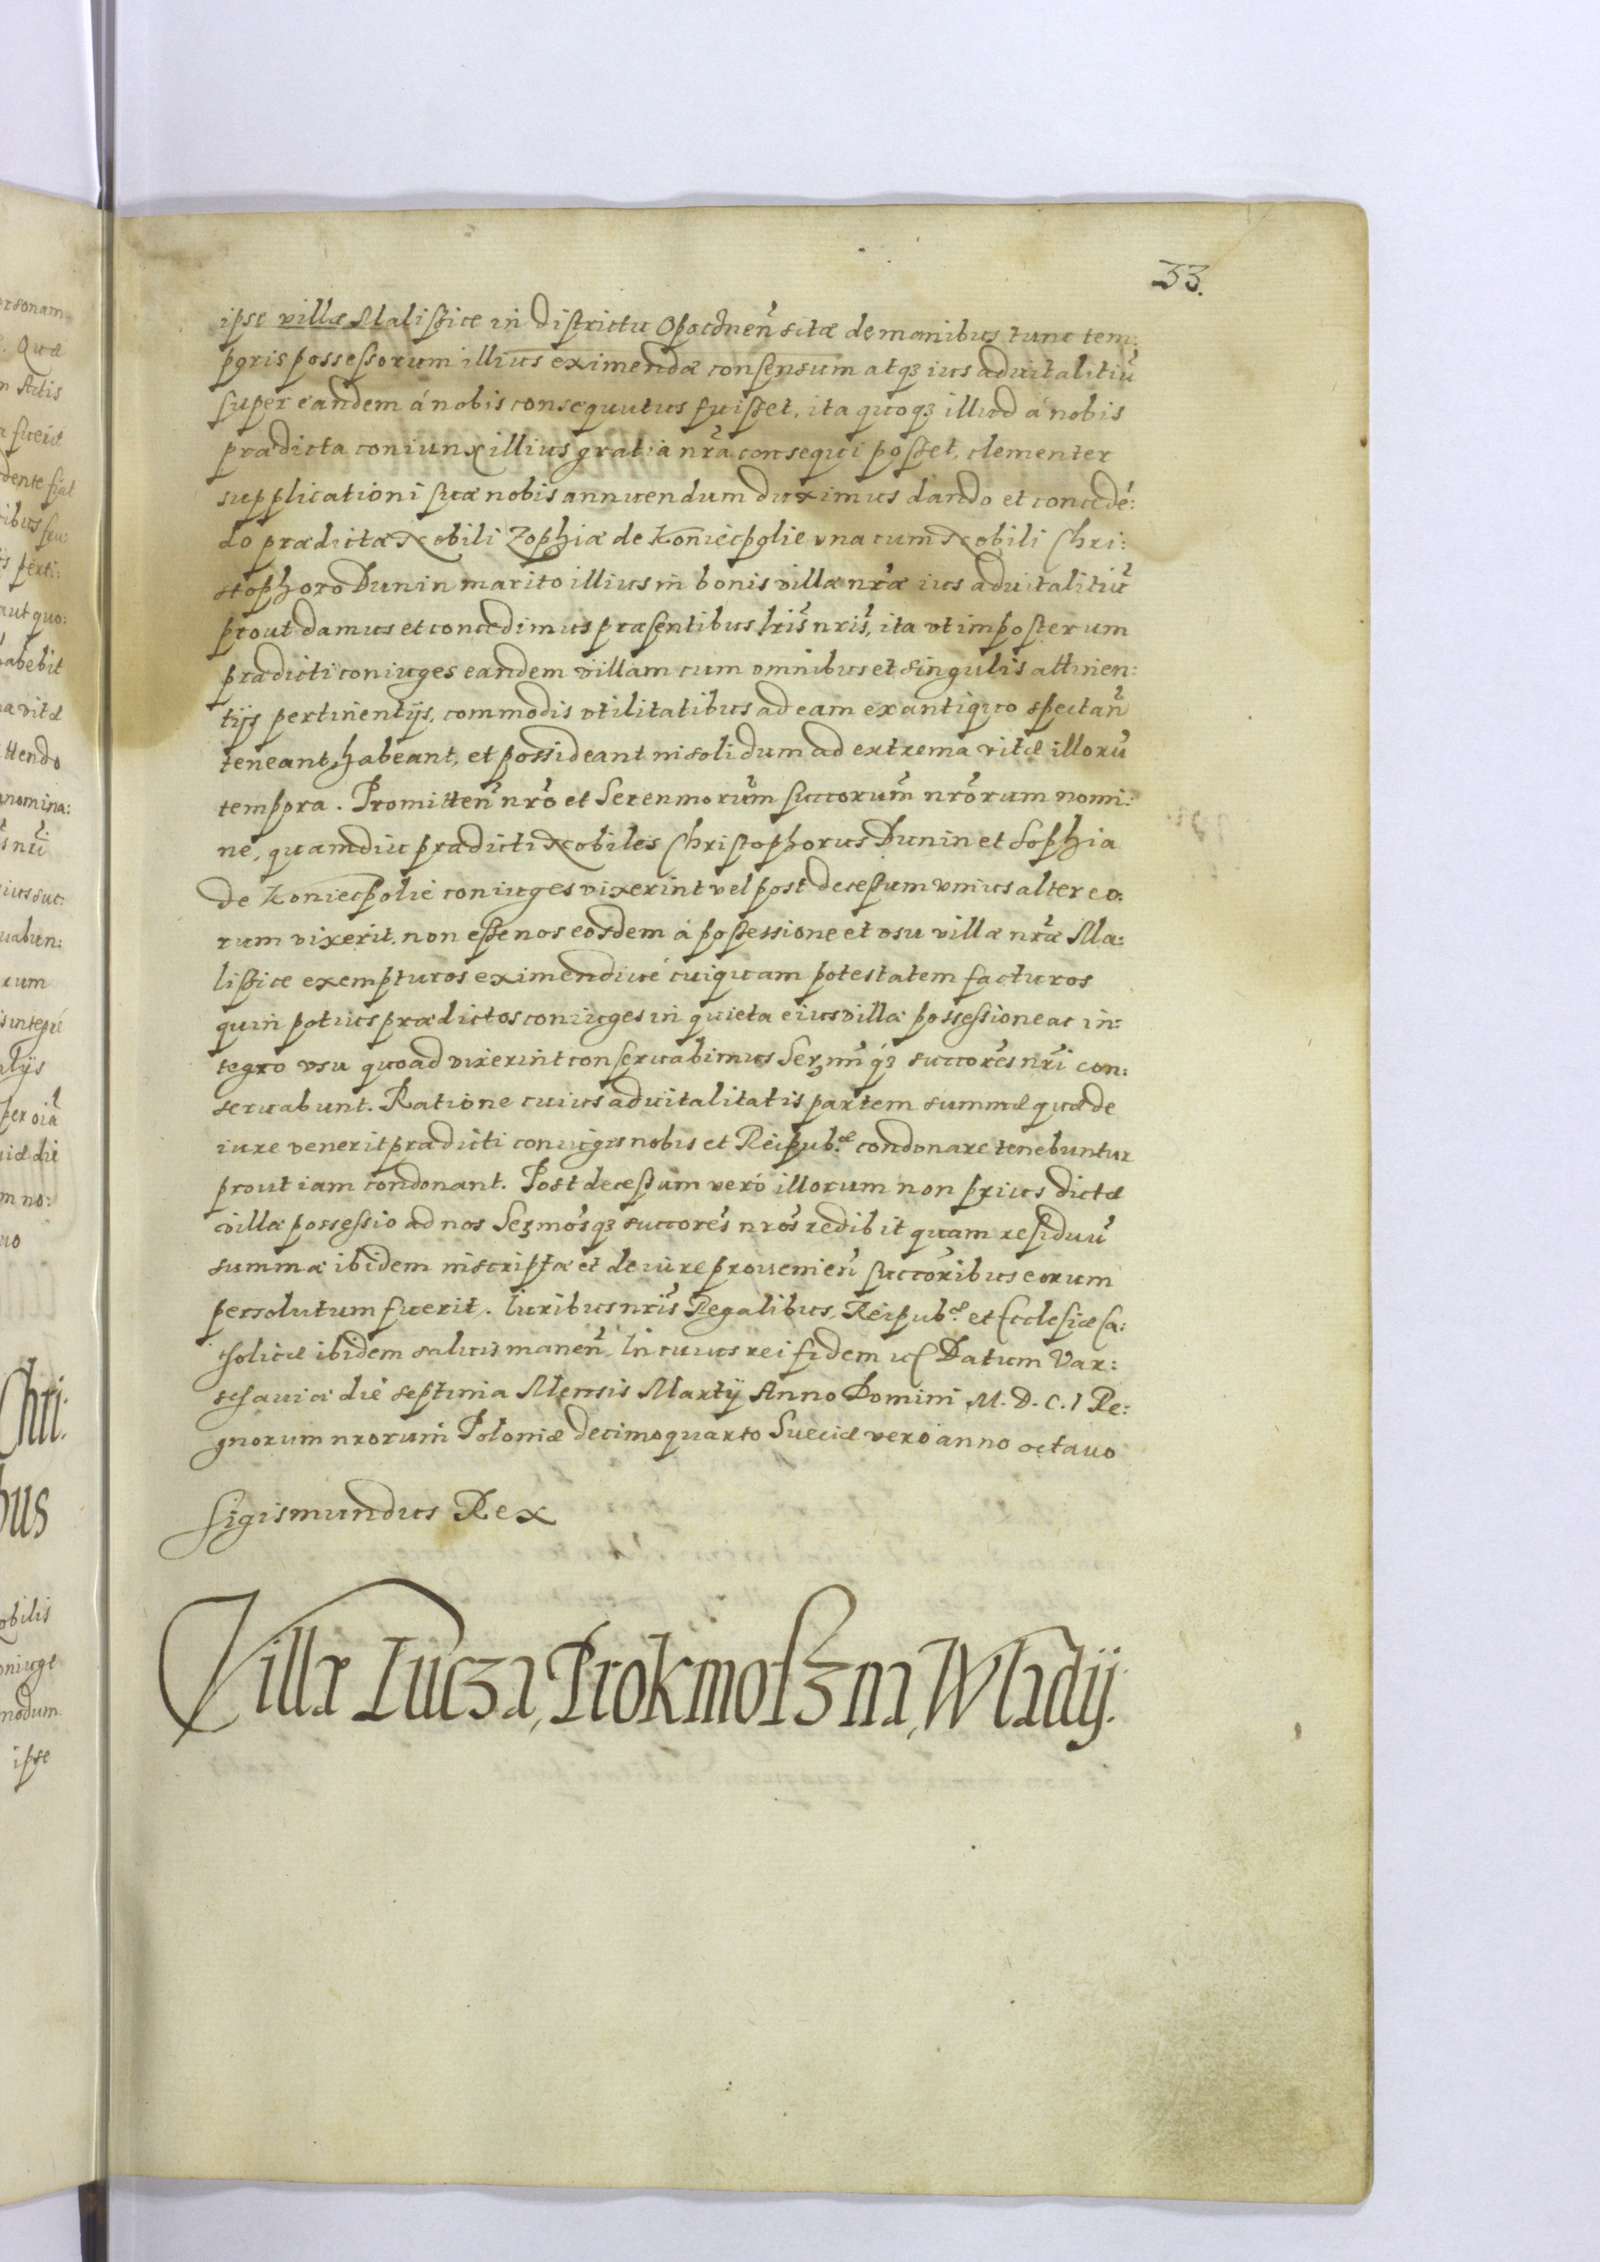 33.
ipse villæ Malissice in districtu Opocznen̄ sitæ de manibus tunc tem:
poris possessorum illius eximendæ consensum atq3 ius aduitalitiū
super eandem á nobis consequutus fuisset, ita quoq3 illud á nobis
prædicta coniunx illius gratia nr̄a consequi posset, clementer
supplicationi suæ nobis annuendum duximus dando et concedē:
do prædictæ Nobili Zophiæ de Koniecpolie vna cum Nobili Chri:
stophoro Dunin marito illius in bonis villæ nr̄æ ius aduitalitiū
prout damus et concedimus præsentibus lr̄is nr̄is, ita vt imposterum
prædicti coniuges eandem villam cum omnibus et singulis attinen:
tijs pertinentijs, commodis vtilitatibus ad eam ex antiquo spectan̄
teneant, habeant, et possideant in solidum ad extrema vitæ illorū
tempora. Promitten̄ nr̄o et Serenmorūm succorum̄ nr̄orum nomi:
ne, quamdiu prædicti Nobiles Christophorus Dunin et Sophia
de Koniecpolie coniuges vixerint vel post decessum vnius alter eo:
rum vixerit, non esse nos eosdem á possessione et vsu villæ nr̄æ Ma:
lissice exempturos eximendiué cuiquam potestatem facturos
quin potius prædictos coniuges in quieta eius villæ possessione ac in:
tegro vsu quoad vixerint conseruabimus Serm̄iq3 succores̄ nr̄i con:
seruabunt. Ratione cuius aduitalitatis partem summæ quæ de
iure venerit prædicti coniuges nobis et Reipub:æ condonare tenebuntur
prout iam condonant. Post decessum veró illorum non prius dictæ
villæ possessio ad nos Sermosq3 succores̄ nr̄os redibit quam residuū
summæ ibidem inscriptæ et de iure prouenien̄ succoribus eorum
persolutum fuerit. Iuribus nr̄is Regalibus, Reipub:æ et Ecclesiæ Ca:
tholicæ ibidem saluis manen̄. In cuius rei fidem &c Datum Var:
schauiæ die septima Mensis Martij Anno Domini M. D. C. I Re:
gnorum nrorum Poloniæ decimoquarto Sueciæ vero anno octauo
Sigismundus Rex
Villa Lucza, Prokmoszna, Wladij: